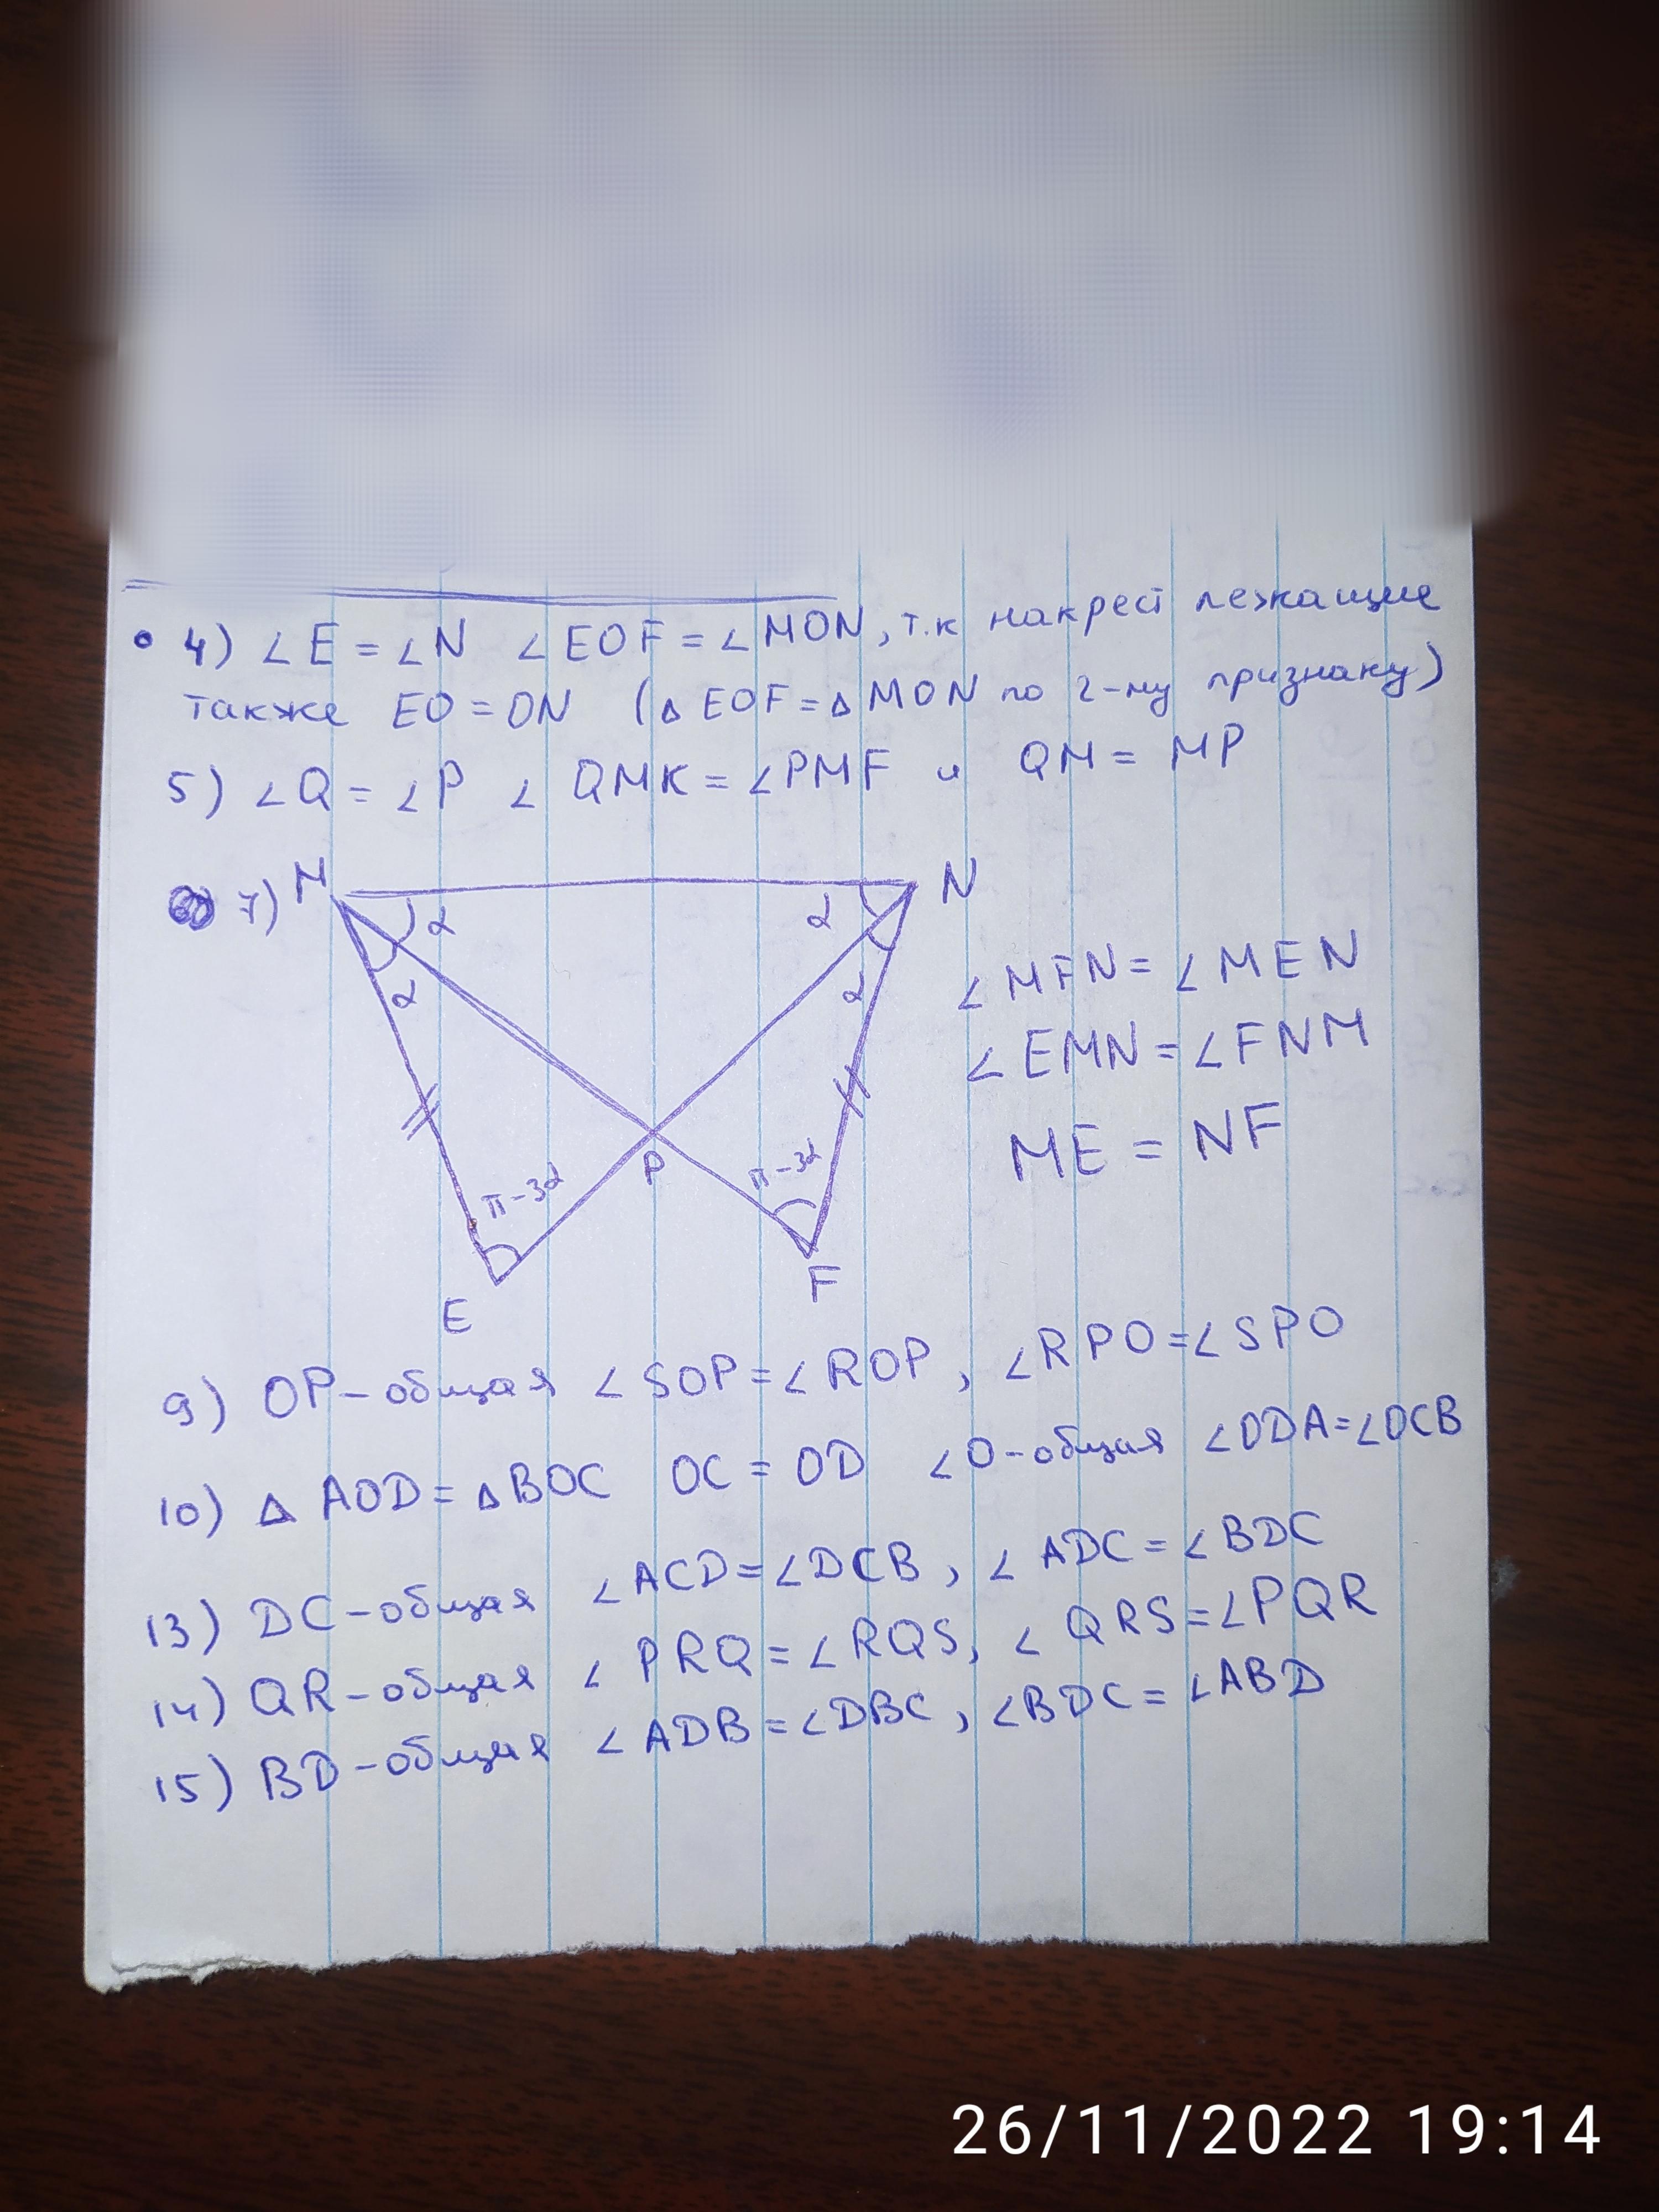 4) ∠E = ∠N ∠EOF = ∠MON, т.к накрест лежащие
также EO = ON (△EOF = △MON по 2-му признаку)
5) ∠Q = ∠P ∠QMK = ∠PMF и QM = MP
7) M N
α α
α α
∠MFN = ∠MEN
∠EMN = ∠FNM
ME = NF
P
π-3α π-3α
E F
9) OP-общая ∠SOP = ∠ROP, ∠RPO = ∠SPO
10) △AOD = △BOC OC = OD ∠O-общая ∠ODA = ∠OCB
13) DC-общая ∠ACD = ∠DCB, ∠ADC = ∠BDC
14) QR-общая ∠PRQ = ∠RQS, ∠QRS = ∠PQR
15) BD-общая ∠ADB = ∠DBC, ∠BDC = ∠ABD
26/11/2022 19:14